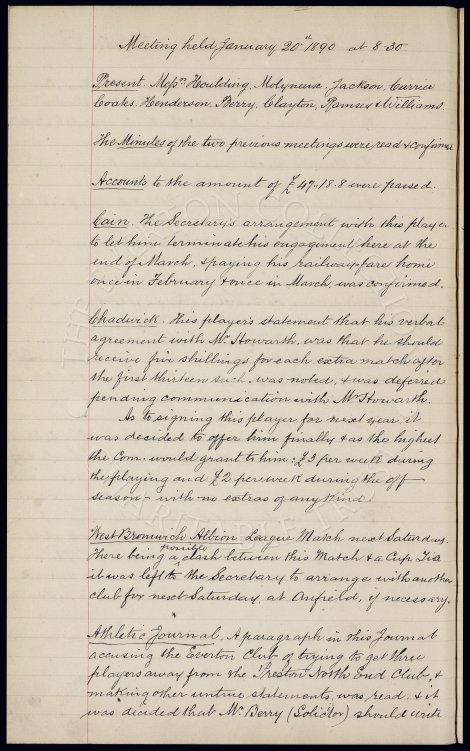 Meeting held January 20th 1890 at 8.30
Present. Messrs Houlding, Molyneux, Jackson, Currier
Coates, Henderson, Berry, Clayton, Ramsey & Williams.
The Minutes of the two previous meetings were read & confirmed
Accounts to the amount of £47.18.8 were passed.
Cain. The Secretary's arrangement with this player
to let him terminate his engagement here at the
end of March, & paying his railway fare home
once in February & once in March, was confirmed.
Chadwick. This player's statement that his verbal
agreement with Mr Howarth, was that he should
receive five shillings for each extra match after
the first thirteen such, was noted, & was deferred
pending communication with Mr Howarth.
As to signing this player for next year, it
was decided to offer him finally & as the highest
the Com. would grant to him: £3 per week during
the playing and £2 per week during the off
season – with no extras of any kind.
West Bromwich Albion. League Match next Saturday.
There being a possible clash between this Match & a Cup Tie
it was left to the Secretary to arrange with another
club for next Saturday, at Anfield, if necessary.
Athletic Journal. A paragraph in this Journal
accusing the Everton Club of trying to get three
players away from the Preston North End Club, &
making other untrue statements, was read, & it
was decided that Mr Berry (Solicitor) should write